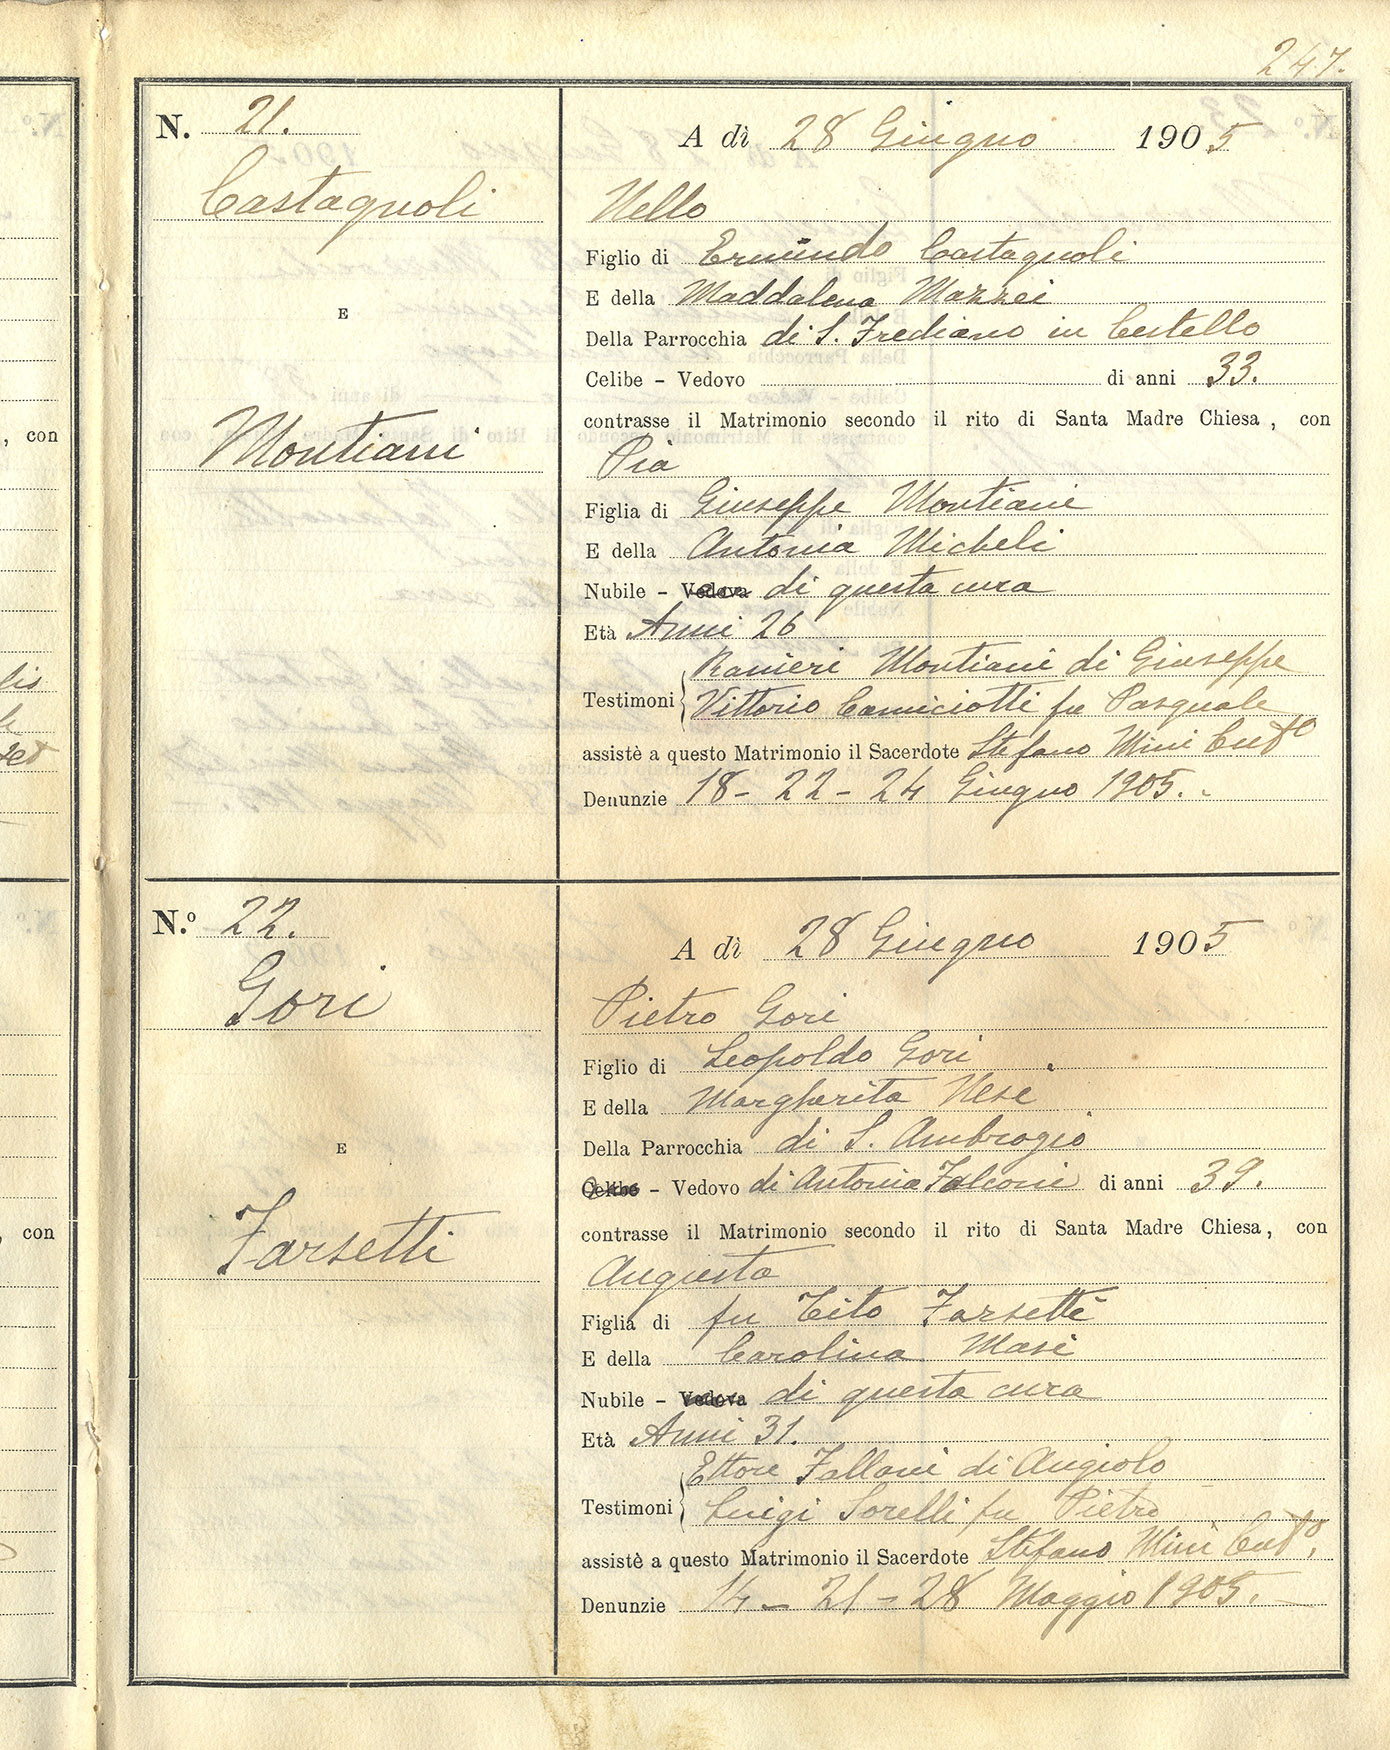 247.
N. 21.
Castagnoli
E
Montiani
A dì 28 Giugno 1905
Nello
Figlio di Ermindo Castagnoli
E della Maddalena Mazzei
Della Parrocchia di S. Frediano in Cestello
Celibe - Vedovo di anni 33.
contrasse il Matrimonio secondo il rito di Santa Madre Chiesa, con
Pia
Figlia di Giuseppe Montiani
E della Antonia Micheli
Nubile - Vedova di questa cura
Età Anni 26
Ranieri Montiani di Giuseppe
Testimoni
Vittorio Camiciotti fu Pasquale
assistè a questo Matrimonio il Sacerdote Stefano Mini
Denunzie 18 - 22 - 24 Giugno 1905. -
N.º 22.
Gori
E
Farsetti
A dì 28 Giugno 1905
Pietro Gori
Figlio di Leopoldo Gori
E della Margherita Nesi
Della Parrocchia di S. Ambrogio
Celibe - Vedovo di Antonia Falconi di anni 39.
contrasse il Matrimonio secondo il rito di Santa Madre Chiesa, con
Augusta
Figlia di fu Tito Farsetti
E della Carolina Masi
Nubile - Vedova di questa cura
Età Anni 31.
Ettore Fallani di Angiolo
Testimoni
Luigi Sorelli fu Pietro
assistè a questo Matrimonio il Sacerdote Stefano Mini
Denunzie 14 - 21 - 28 Maggio 1905. -
, con
con